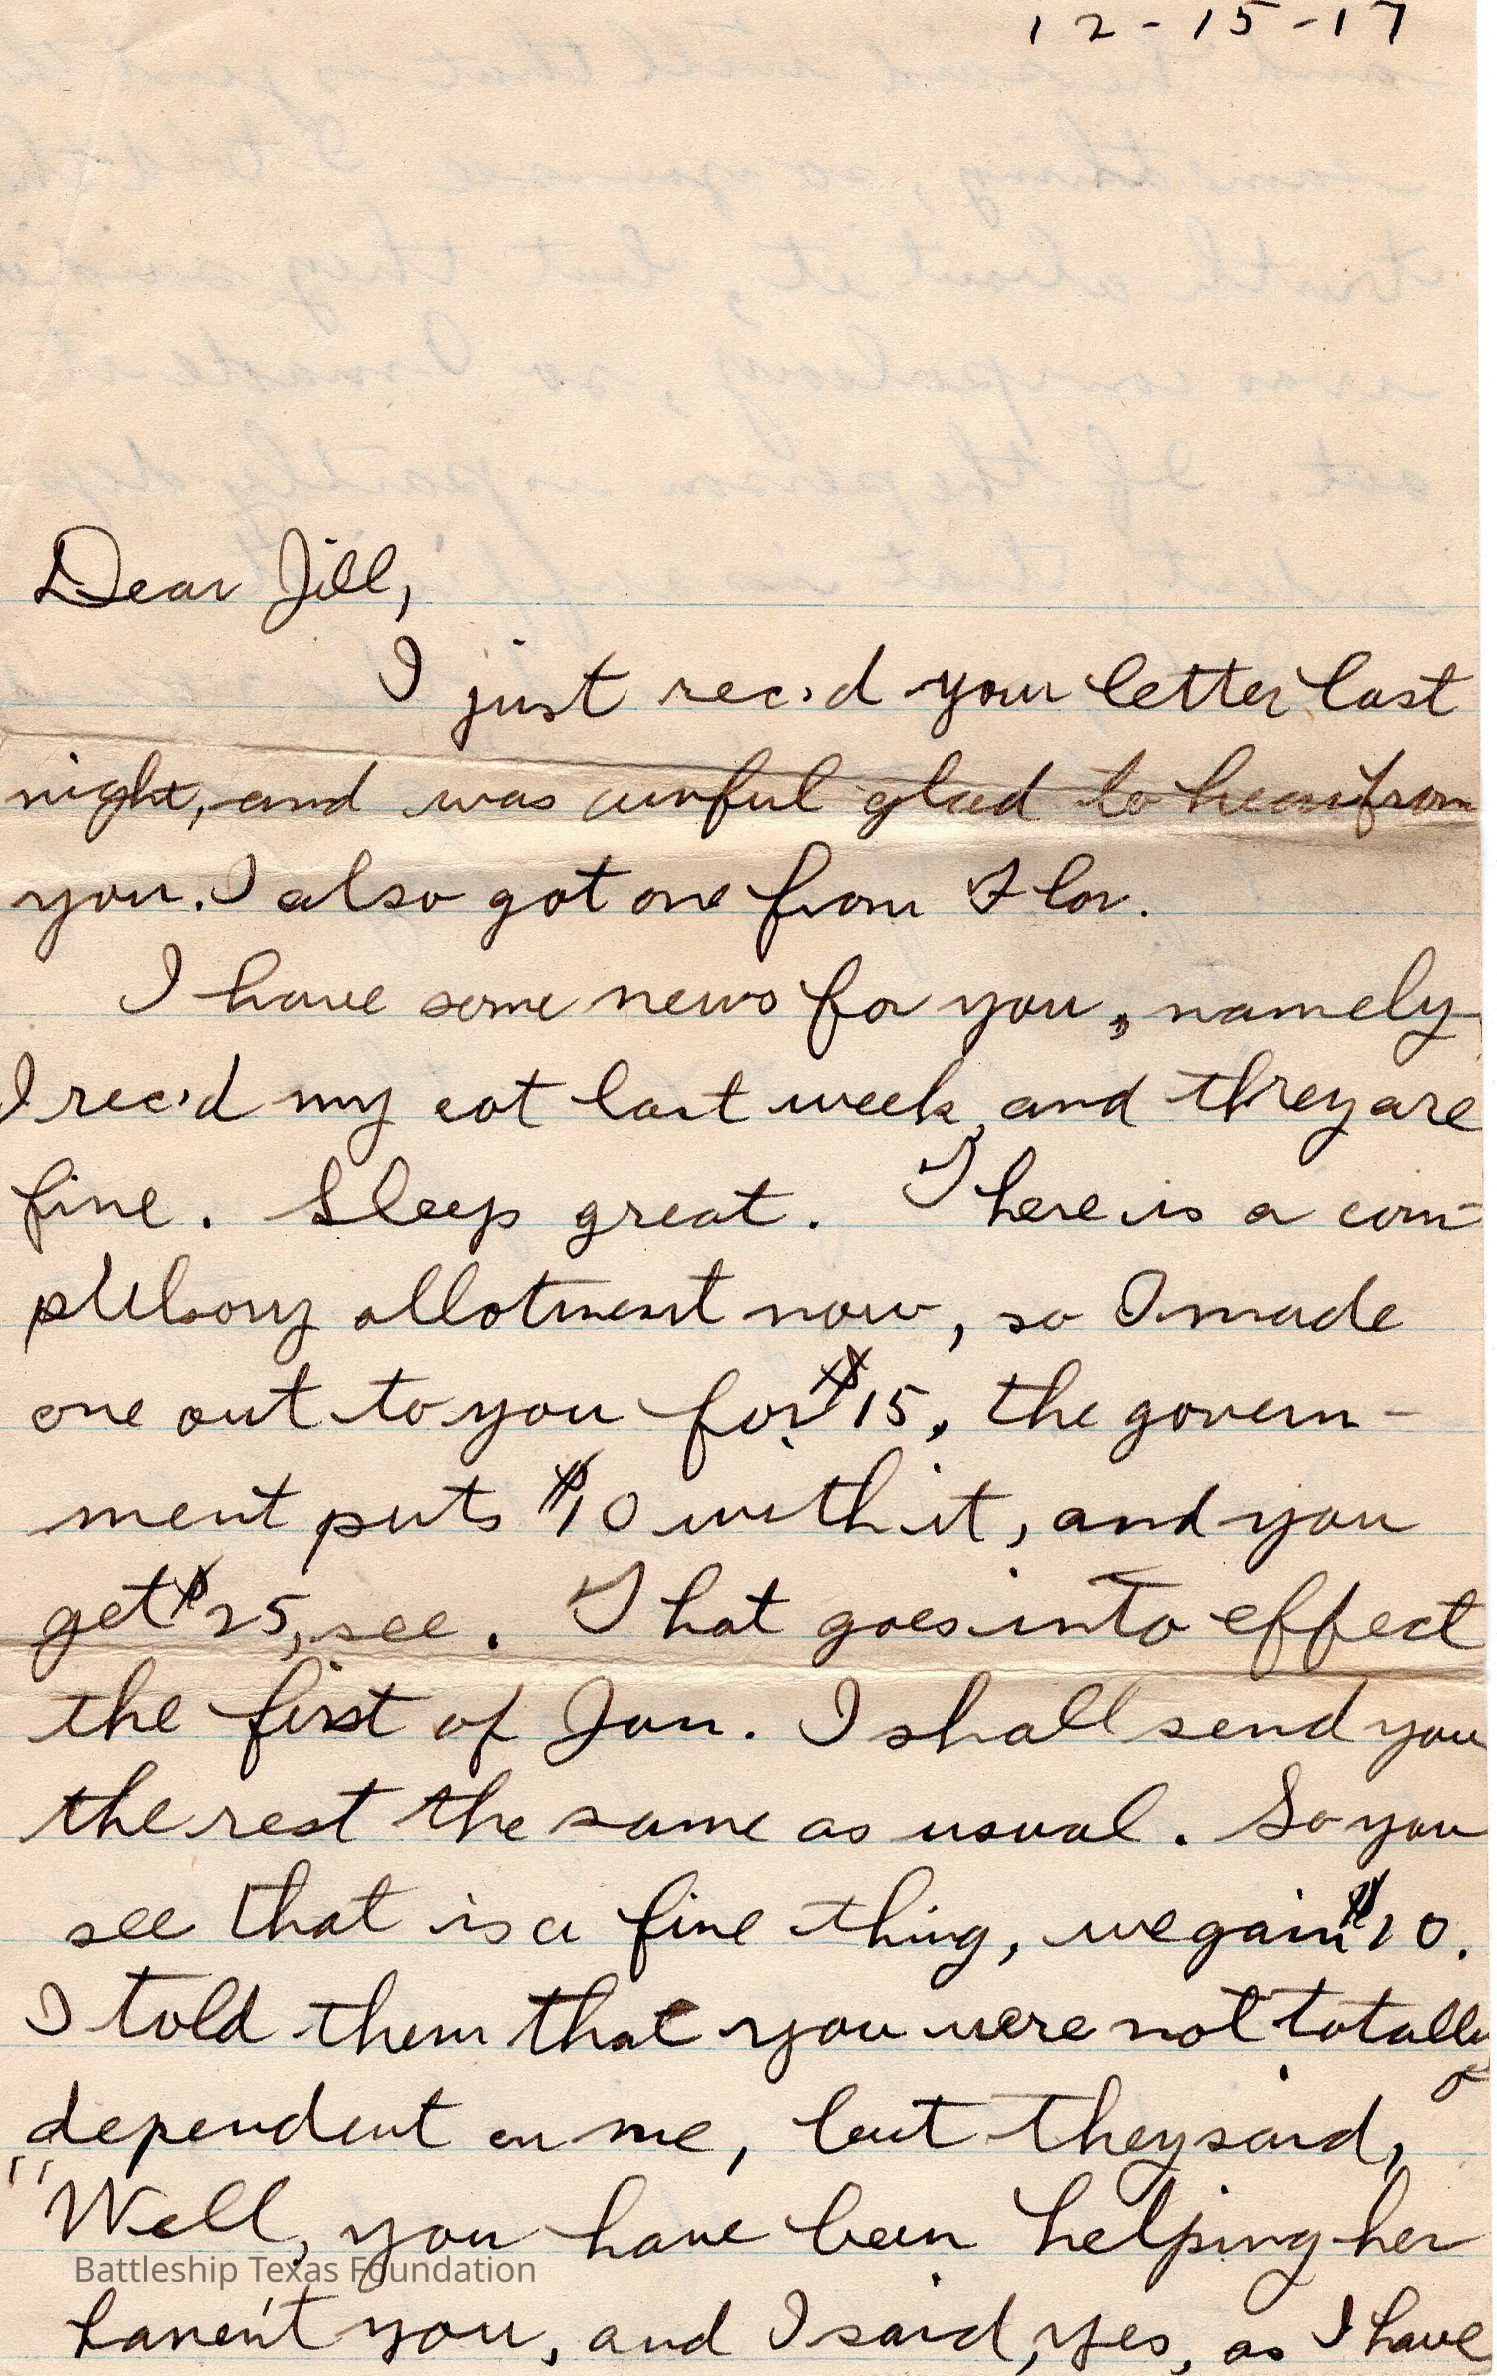 12-15-17
Dear Jill,
I just rec'd your letter last
night, and was awful glad to hear from
you. I also got one from Flor.
I have some news for you, namely
I rec'd my cot last week, and they are
fine. Sleep great. There is a com-
pulsory allotment now, so I made
one out to you for $15, the govern-
ment puts $10 with it, and you
get $25, see. That goes into effect
the first of Jan. I shall send you
the rest the same as usual. So you
see that is a fine thing, we gain $10.
I told them that you were not totally
dependent on me, but they said,
"Well, you have been helping her
Battleship Texas Foundation
haven't you, and I said, yes, as I have